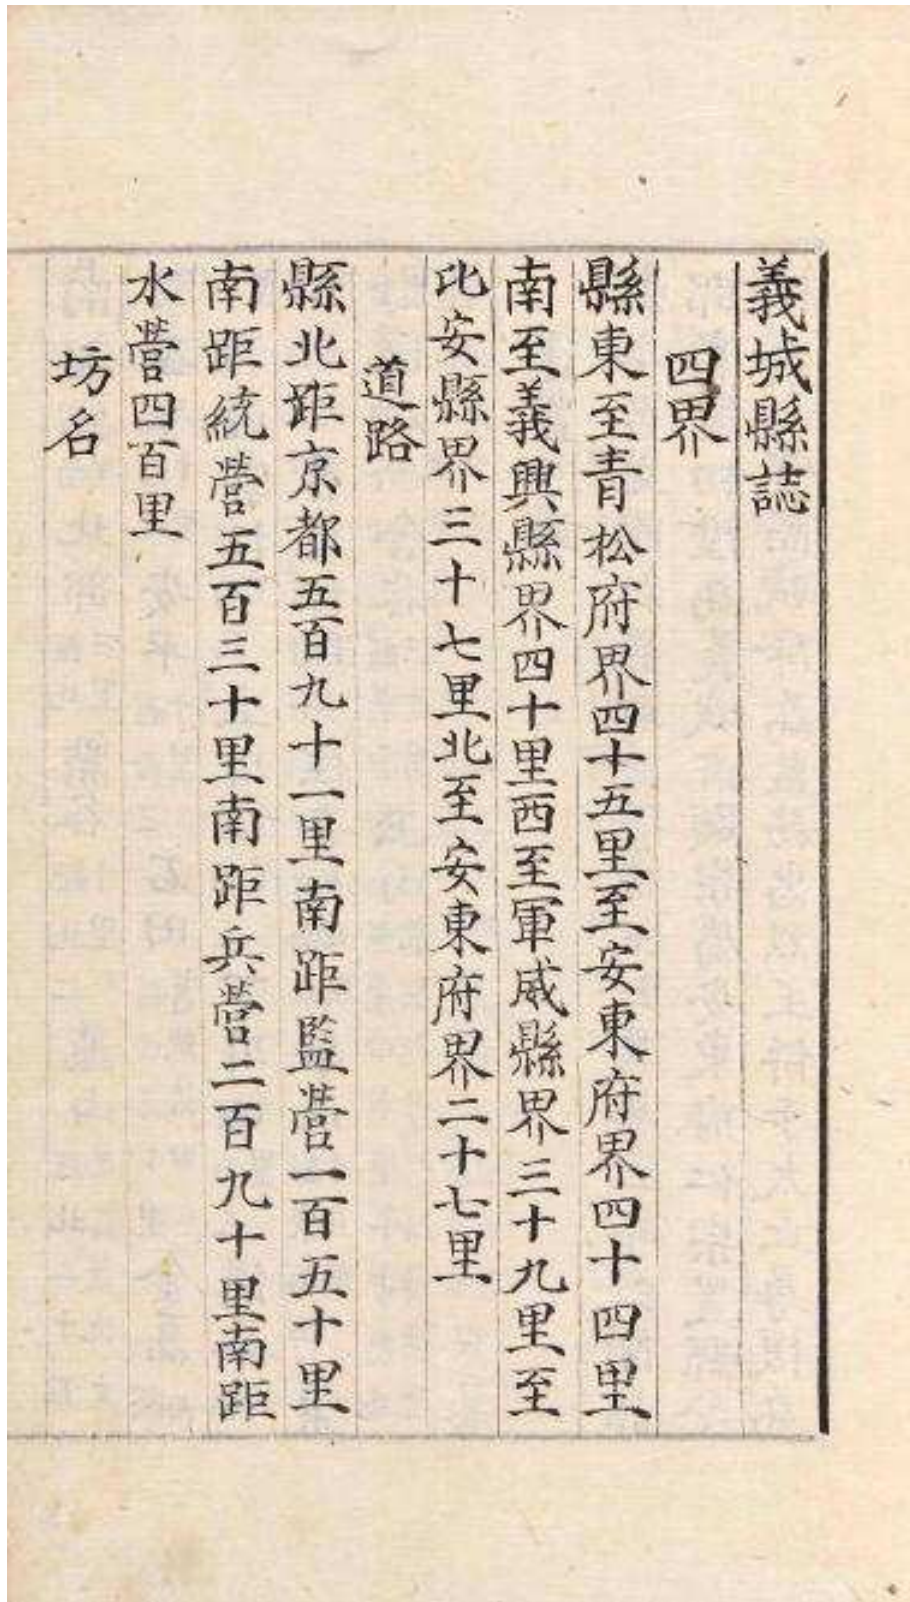 義城縣誌
四界
縣東至青松府界四十五里至安東府界四十四里
南至義興縣界四十里西至軍威縣界三十九里至
比安縣界三十七里北至安東府界二十七里
道路
縣北距京都五百九十一里南距監營一百五十里
南距統營五百三十里南距兵營二百九十里南距
水營四百里
坊名